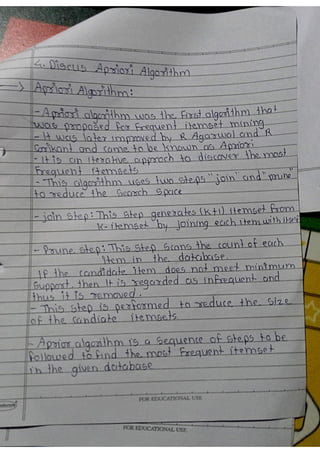 4. Discus Apriori Algorithm
→ Apriori Algorithm:
- Apriori algorithm was the first algorithm that
was proposed for frequent itemset mining
- It was later improved by R Agarwal and R
Srikant and came to be known as Apriori
- It is an iterative approch to discover the most
frequent itemsets
- This algorithm uses two steps "join" and "prune"
to reduce the search space
- join step: This step generates (k+1) itemset from
k-itemset by joining each item with itself
- Prune step: This step scans the count of each
item in the database.
If the candidate item does not meet minimum
support, then it is regarded as infrequent and
thus it is removed.
- This step is performed to reduce the size
of the candiate itemsets
- Aprior algorithm is a sequence of steps to be
followed to find the most frequent itemset
in the given database
FOR EDUCATIONAL USE
FOR EDUCATIONAL USE